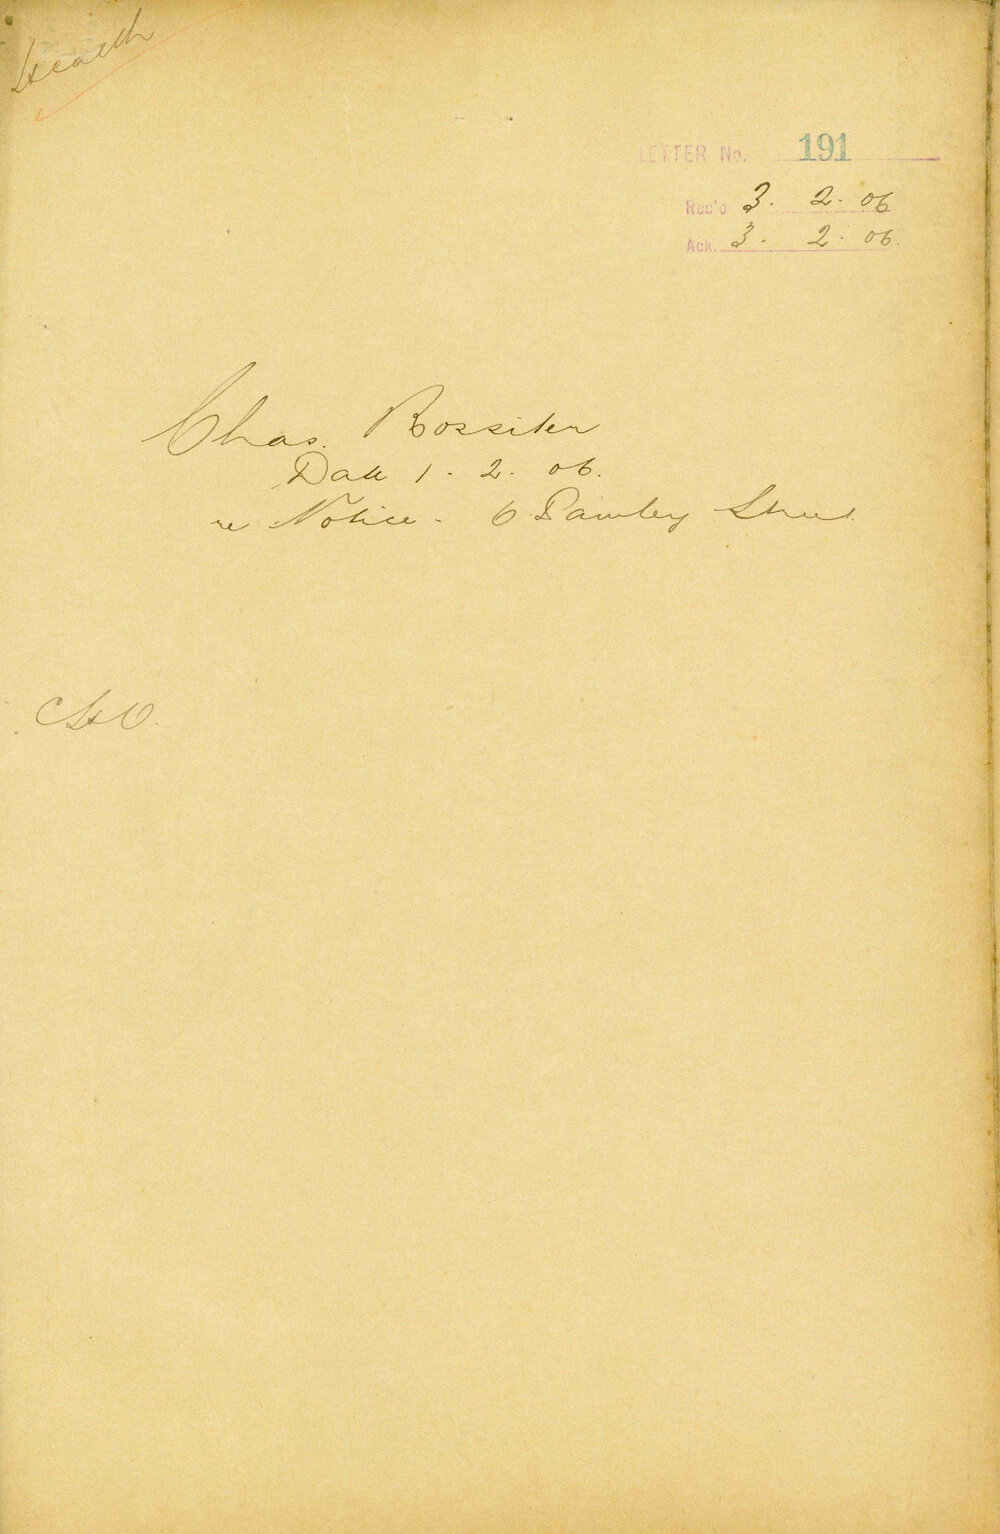 Health
LETTER No. 191
Rec'd 3. 2. 06
Ack. 3. 2. 06.
Chas. Rossiter
Date 1. 2. 06.
re Notice - 6 Pawley Street
CHO.